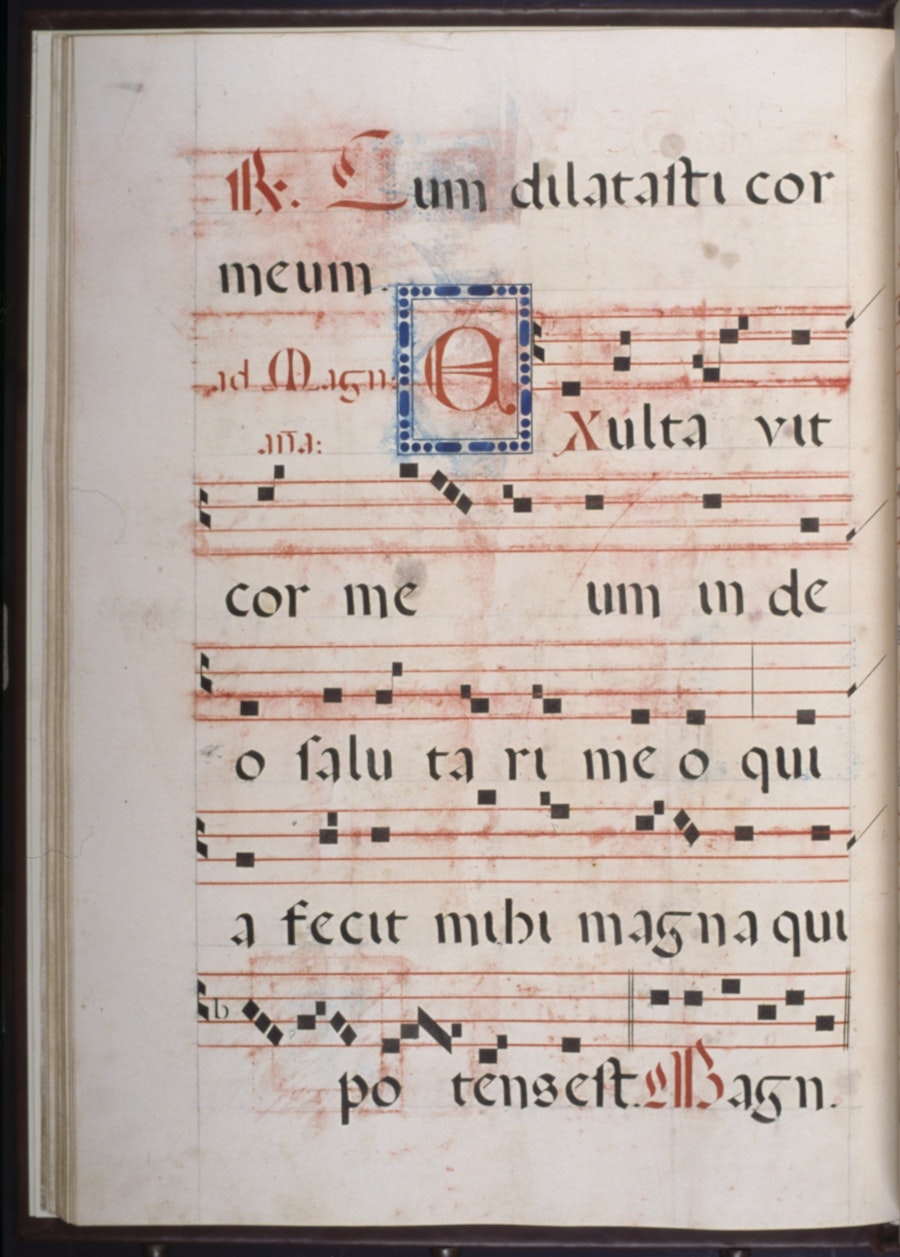 ℟. Cum dilataſti cor
meum.
ad Magn:
Exulta vit
an̄a:
cor me um in de
o ſalu ta ri me o qui
a fecit mihi magna qui
po tens eſt. Magn.